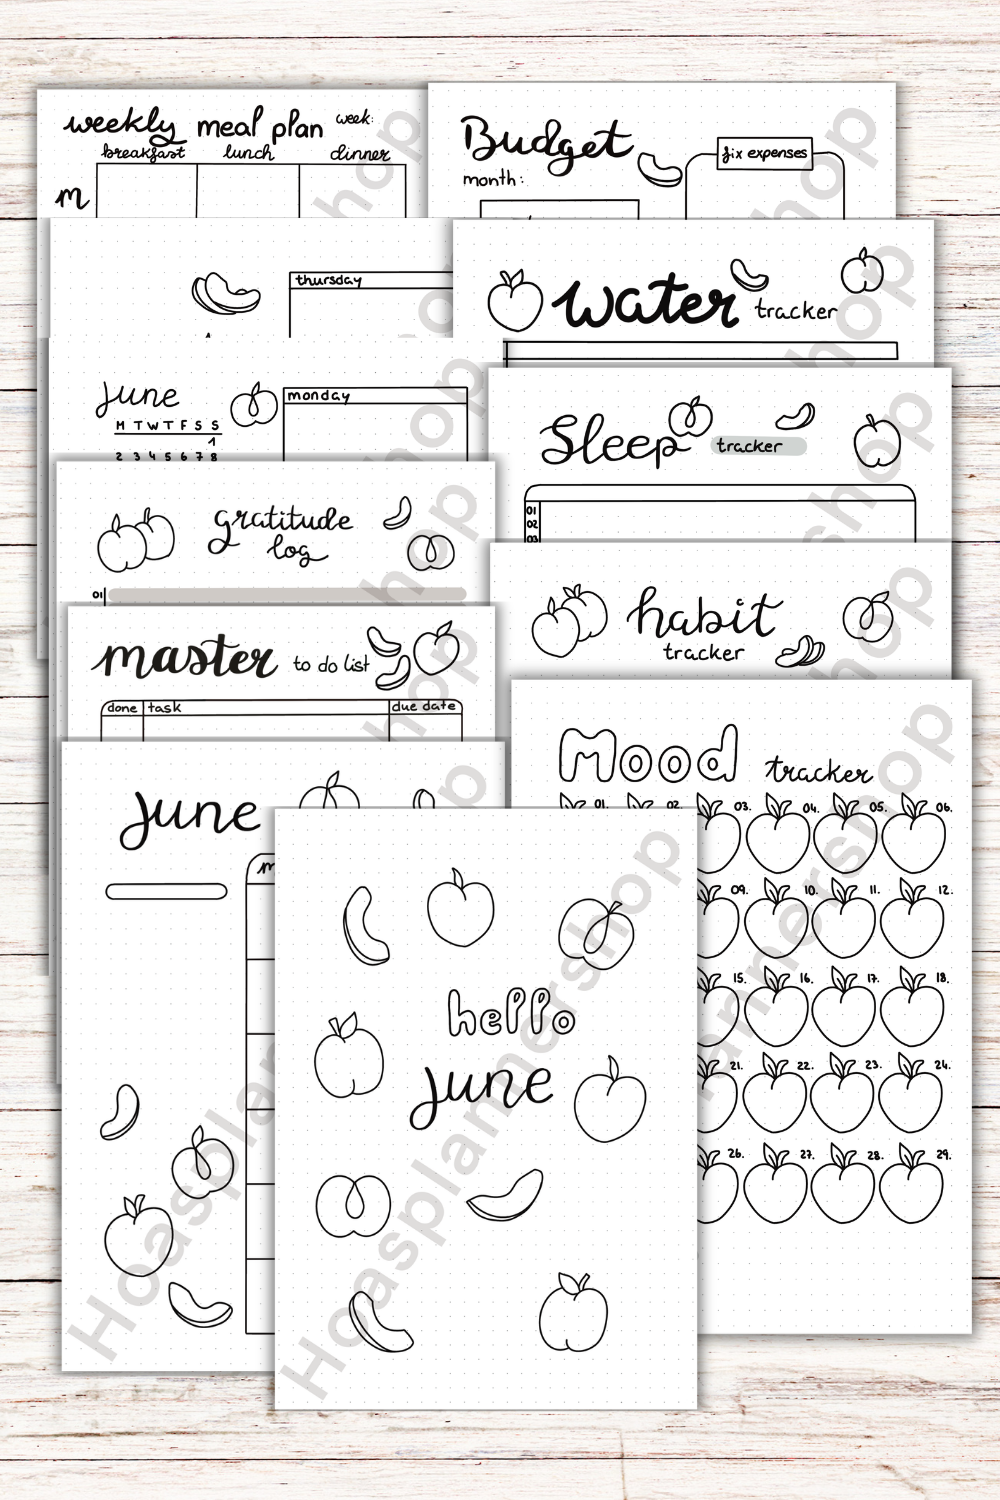 weekly meal plan week:
breakfast lunch dinner
m
Budget
month:
fix expenses
thursday
water tracker
June
M T W T F S S
1
2 3 4 5 6 7 8
monday
Sleep tracker
01
02
03
gratitude
log
01
habit
tracker
master to do list
done task due date
Mood tracker
01. 02. 03. 04. 05. 06.
09. 10. 11. 12.
15. 16. 17. 18.
21. 22. 23. 24.
26. 27. 28. 29.
June
m
hello
June
Hoasplannershop